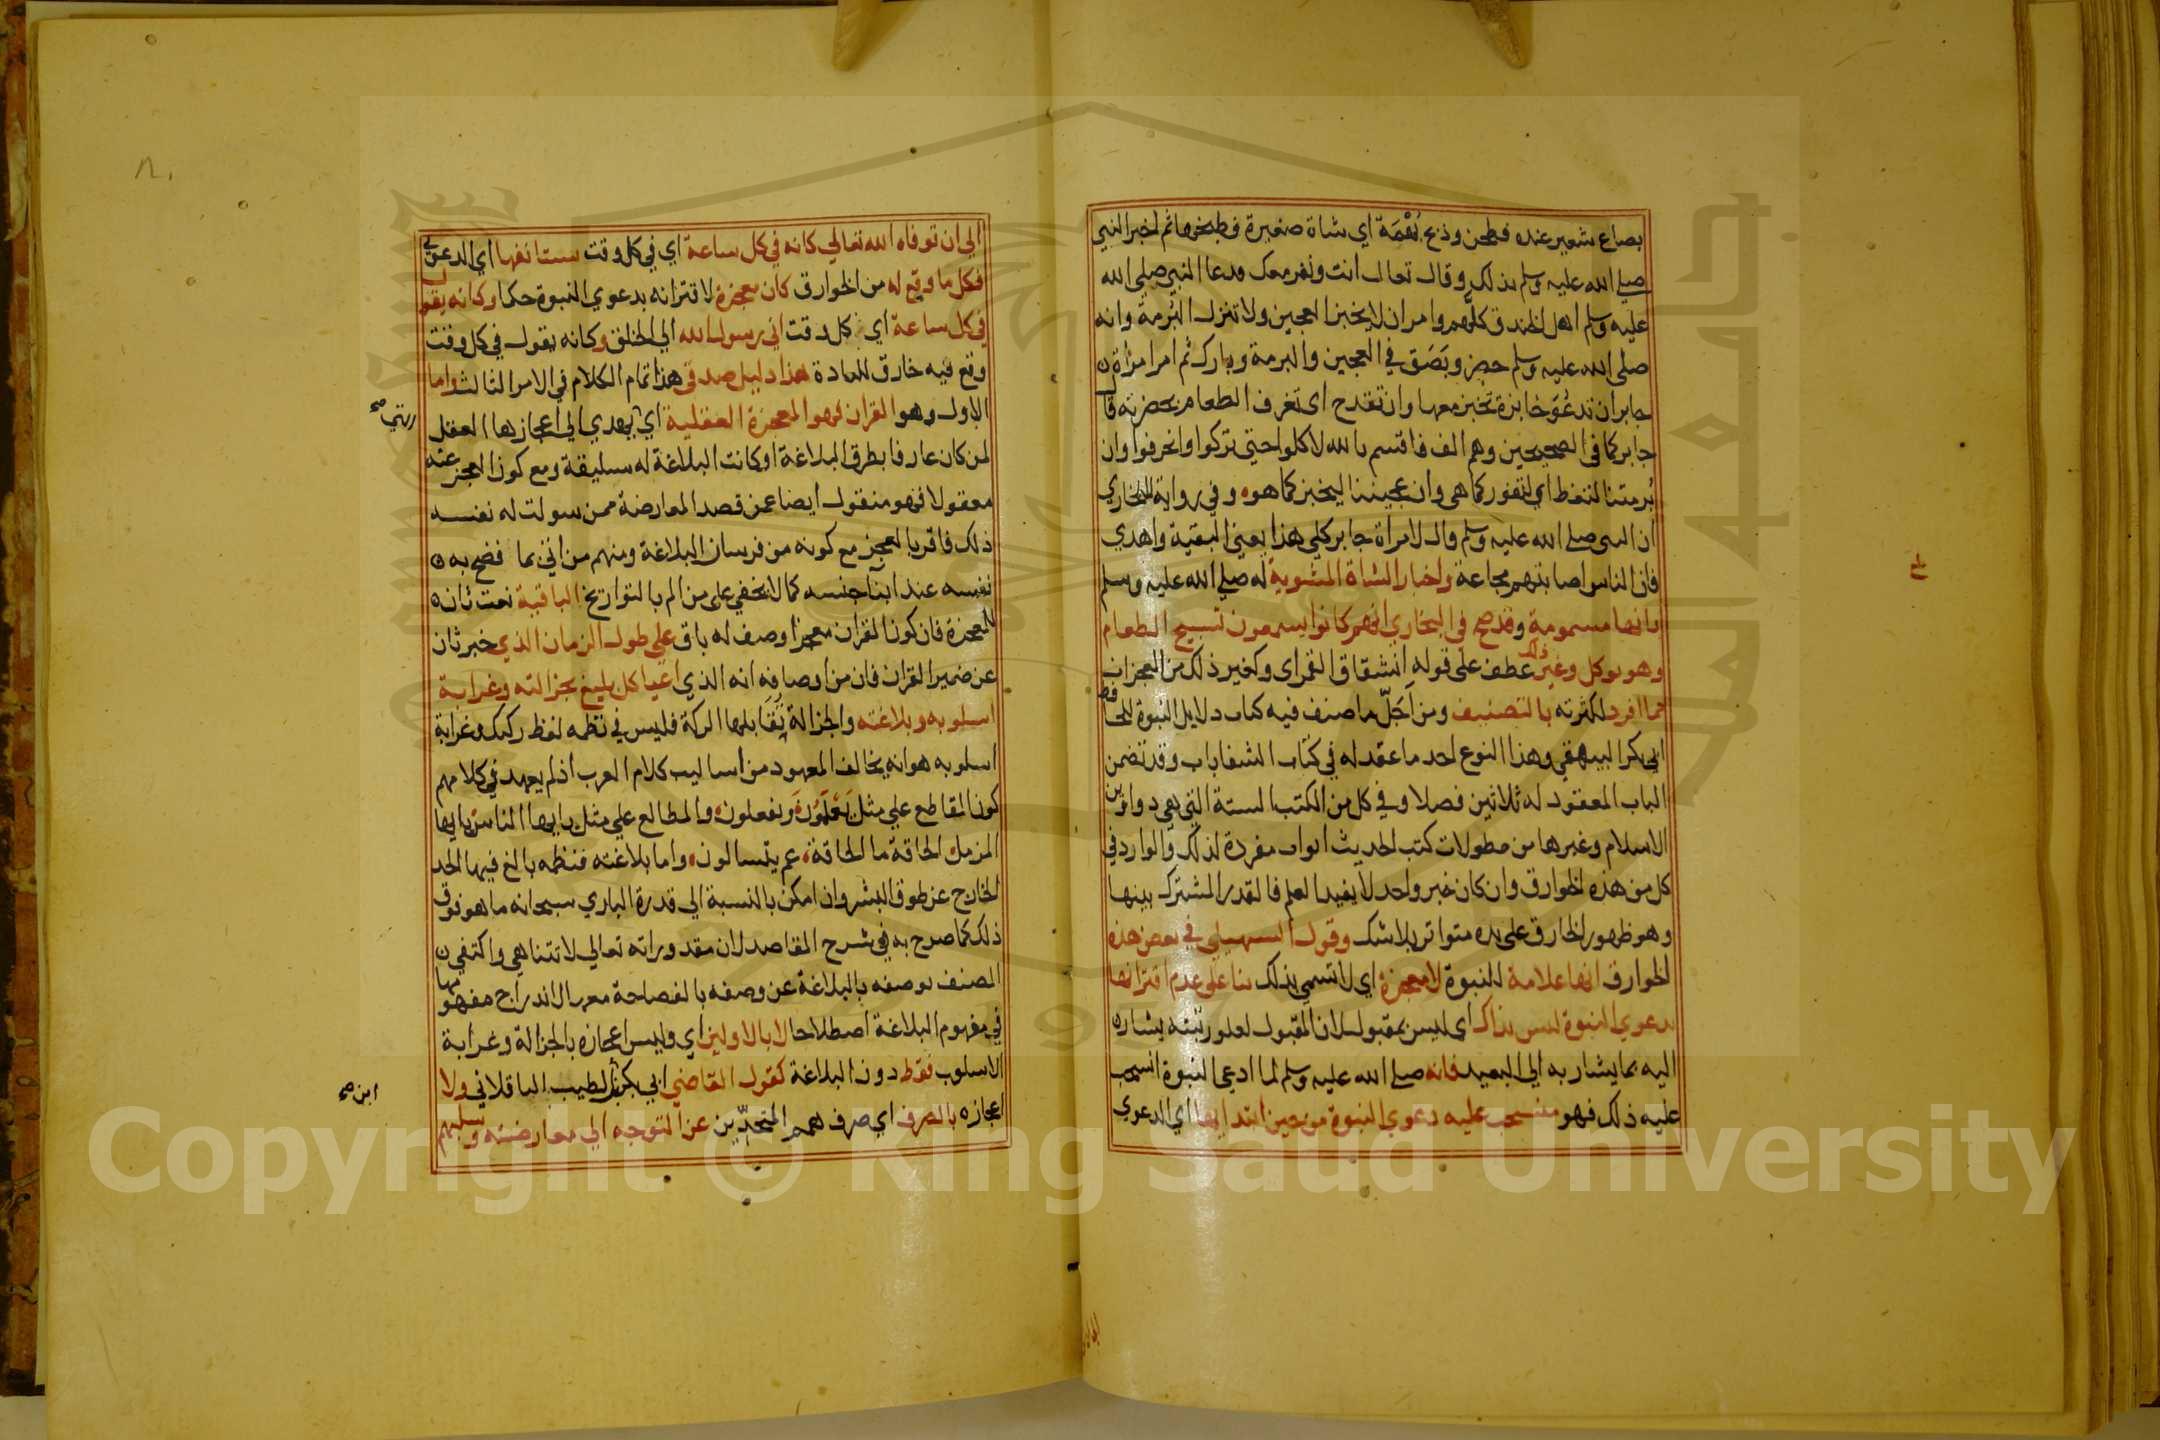 بصاع شعير عنده فطحن وذبح بُهْمَة اي شاة صغيرة فطبخها ثم اخبر النبي
صلي الله عليه وسلم بذلك وقال تعال انت ونفر معك فدعا النبي صلي الله
عليه وسلم اهل الخندق كلهم وامر ان لا يخبز العجين ولا تنزل البُرمة وانه
صلي الله عليه وسلم حضر وبَصَق في العجين والبرمة وبارك ثم امر امرأة
جابر ان تدعُوَ خابزة تخبز معها وان تقدح اي تغرف الطعام بحضرته قال
جابر كما في الصحيحين وهم الف فاقسم بالله لاكلوا حتي تركوا وانحرفوا وان
بُرمتنا لتغط اي لتفور كما هي وان عجيننا ليخبز كما هو وفي رواية للبخاري
ان النبي صلي الله عليه وسلم قال لامراة جابر كلي هذا يعني البقية واهدي
فان الناس اصابتهم مجاعة واخبار الشاة المشوية له صلي الله عليه وسلم
بانها مسمومة وقد صح في البخاري انهم كانوا يسمعون تسبيح الطعام
وهو يوكل وغير ذلك عطف علي قوله انشقاق القمر اي وكغير ذلك من المعجزات
مما افرد لكثرته بالتصنيف ومن اَجَلّ ما صنف فيه كتاب دلايل النبوة للحافظ
ابي بكر البيهقي وهذا النوع احد ما عقد له في كتاب الشفا باب وقد تضمن
الباب المعقود له ثلاثين فصلا وفي كل من الكتب الستة التي هي دواوين
الاسلام وغيرها من مطولات كتب الحديث ابواب مفردة لذلك والوارد في
كل من هذه الخوارق وان كان خبر واحد لا يفيد العلم فالقدر المشترك بينها
وهو ظهور الخارق علي يده متواتر بلا شك وقول السهيلي في بعض هذه
الخوارق انها علامة للنبوة لا معجزة اي لا تسمي بذلك بنا علي عدم اقترانها
بدعوي النبوة ليس بذاك اي ليس بمقبول لان المقبول لعلو رتبته يشار
اليه بما يشار به الي البعيد فانه صلي الله عليه وسلم لما ادعي النبوة انسحب
عليه ذلك فهو منسحب عليه دعوي النبوة من حين ابتدايها اي الدعوي
الي ان توفاه الله تعالي كانه في كل ساعة اي في كل وقت يستانفها اي الدعوي
فكل ما وقع له من الخوارق كان معجزة لاقترانه بدعوي النبوة حكما وكانه يقول
في كل ساعة اي كل وقت اني رسول الله الي الخلق وكانه يقول في كل وقت
وقع فيه خارق للعادة هذا دليل صدقي هذا تمام الكلام في الامر الثالث واما
الاول وهو القران فهو المعجزة العقلية اي يهدي الي اعجازها العقل
التي صح
لمن كان عارفا بطرق البلاغة او كانت البلاغة له سليقة ومع كون العجز عنه
معقولا فهو منقول ايضا عمن قصد المعارضة ممن سولت له نفسه
ذلك فاقر بالعجز مع كونه من فرسان البلاغة ومنهم من اتي بما فضح به
نفسه عند ابنا جنسه كما لا يخفي علي من الم بالتواريخ الباقية نعت ثان
للمعجزة فان كون القران معجزا وصف له باق علي طول الزمان الذي خبر ثان
عن ضمير القران فان من اوصافه انه الذي اعيا كل بليغ بجزالته وغرابة
اسلوبه وبلاغته والجزالة تُقَابلها الركة فليس في نظمه لفظ ركيك وغرابة
اسلوبه هو انه يخالف المعهود من اساليب كلام العرب اذ لم يعهد في كلامهم
كون المقاطع علي مثل يَعْلَمُونَ ويفعلون والمطالع علي مثل يا ايها الناس يا ايها
المزمل الحاقة ما الحاقة عم يتسالون واما بلاغته فنظمه بالغ فيها الحد
الخارج عن طوق البشر وان امكن بالنسبة الي قدرة الباري سبحانه ما هو فوق
ذلك كما صرح به في شرح المقاصد لان مقدوراته تعالي لا تتناهي واكتفي
المصنف بوصفه بالبلاغة عن وصفه بالفصاحة معها لاندراج مفهومها
في مفهوم البلاغة اصطلاحا لا بالاولين اي وليس اعجازه بالجزالة وغرابة
الاسلوب فقط دون البلاغة كقول القاضي ابي بكر الطيب الباقلاني ولا
ابن صح
اعجازه بالصرف اي صرف همم المتحدّين عن التوجه الي معارضته وسلبهم
Copyright © King Saud University